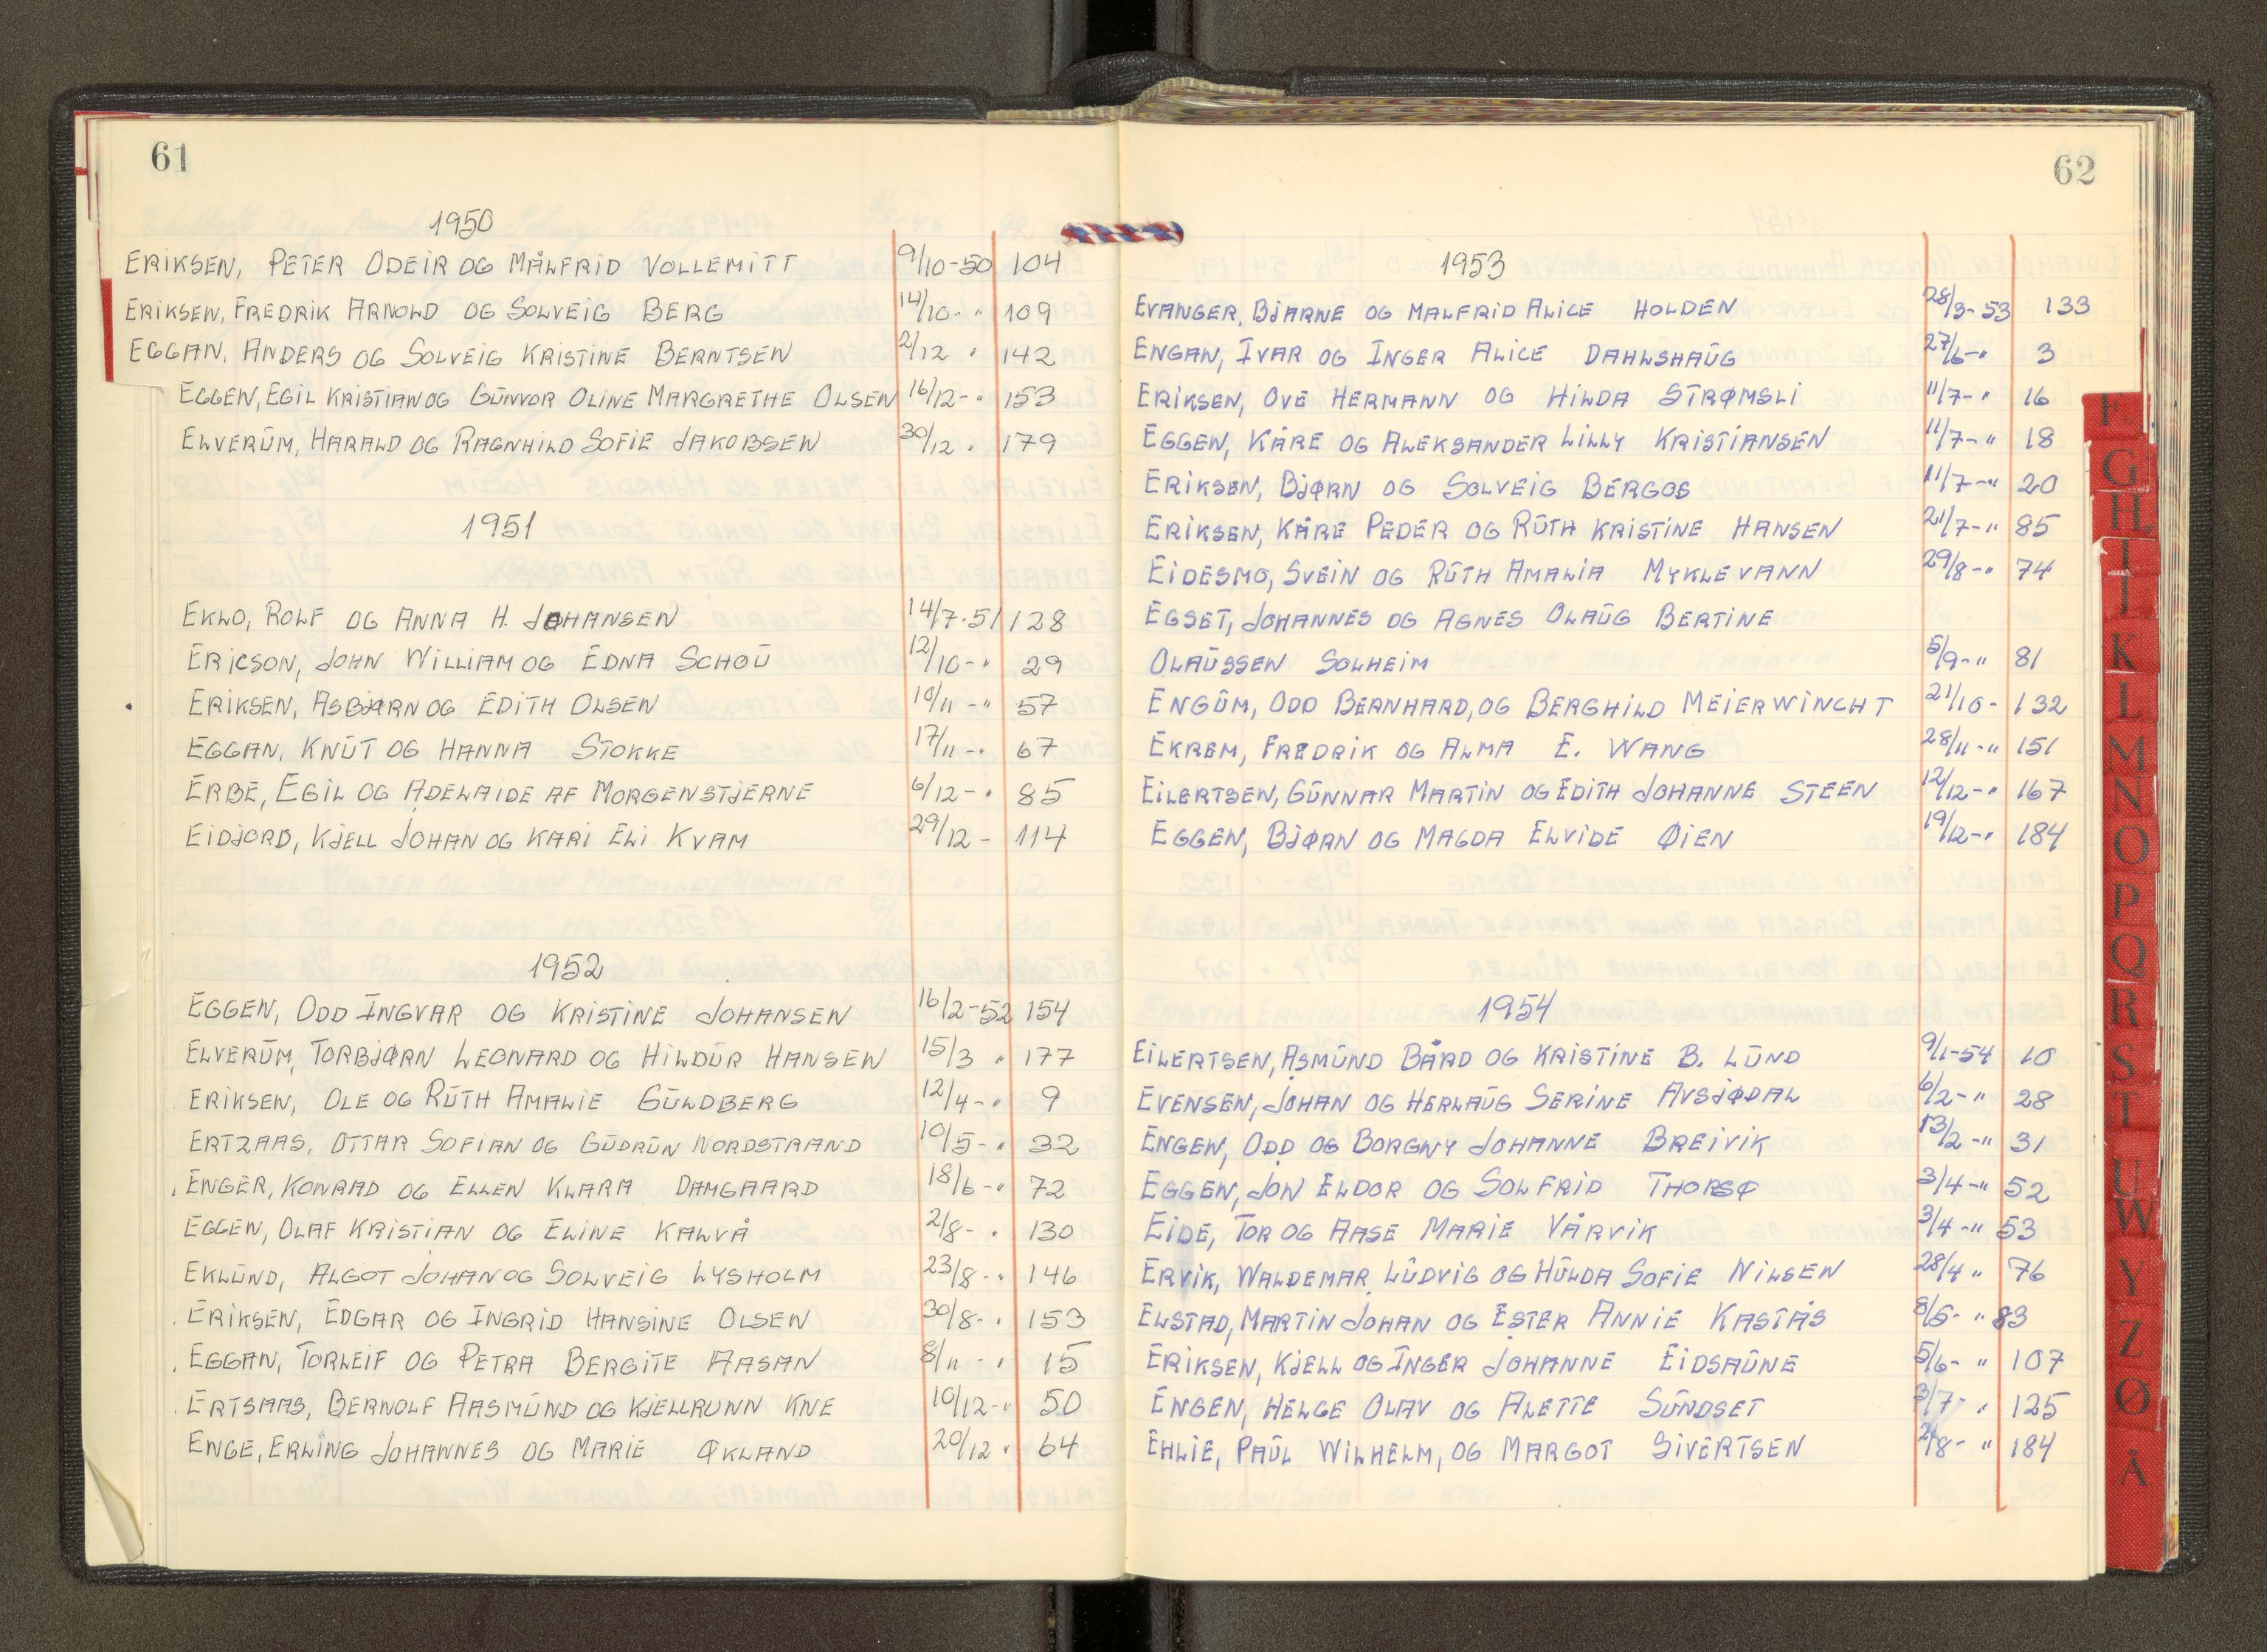 61
1950
ERIKSEN, PETER ODEIR OG MÅLFRID VOLLEMITT 9/10-50 104
ERIKSEN, FREDRIK ARNOLD OG SOLVEIG BERG 14/10- " 109
EGGAN, ANDERS OG SOLVEIG KRISTINE BERNTSEN 2/12 " 142
EGGEN, EGIL KRISTIAN OG GUNVOR OLINE MARGRETHE OLSEN 16/12- " 153
ELVERUM, HARALD OG RAGNHILD SOFIE JAKOBSEN 30/12 " 179
1951
EKLO, ROLF OG ANNA H. JOHANSEN 14/7-51 128
ERICSON, JOHN WILLIAM OG EDNA SCHOU 12/10- " 29
ERIKSEN, ASBJØRN OG EDITH OLSEN 10/11 - " 57
EGGAN, KNUT OG HANNA STOKKE 17/11 - " 67
ERBE, EGIL OG ADELAIDE AF MORGENSTJERNE 6/12 - " 85
EIDJORD, KJELL JOHAN OG KARI ELI KVAM 29/12 - 114
1952
EGGEN, ODD INGVAR OG KRISTINE JOHANSEN 16/2-52 154
ELVERUM, TORBJØRN LEONARD OG HILDUR HANSEN 15/3 " 177
ERIKSEN, OLE OG RUTH AMALIE GULDBERG 12/4- " 9
ERTZAAS, OTTAR SOFIAN OG GUDRUN NORDSTRAND 10/5- " 32
ENGER, KONRAD OG ELLEN KLARA DAMGAARD 18/6- " 72
EGGEN, OLAF KRISTIAN OG ELINE KALVÅ 2/8- " 130
EKLUND, ALGOT JOHAN OG SOLVEIG LYSHOLM 23/8- " 146
ERIKSEN, EDGAR OG INGRID HANSINE OLSEN 30/8- " 153
EGGAN, TORLEIF OG PETRA BERGITE AASAN 8/11 - " 15
ERTSAAS, BERNOLF AASMUND OG KJELLRUNN KNE 10/12- " 50
ENGE, ERLING JOHANNES OG MARIE ØKLAND 20/12 " 64
62
1953
EVANGER, BJARNE OG MALFRID ALICE HOLDEN 28/3-53 133
ENGAN, IVAR OG INGER ALICE DAHLSHAUG 27/6- " 3
ERIKSEN, OVE HERMANN OG HILDA STRØMSLI 11/7- " 16
EGGEN, KÅRE OG ALEKSANDER LILLY KRISTIANSEN 11/7- " 18
ERIKSEN, BJØRN OG SOLVEIG BERGOS 11/7- " 20
ERIKSEN, KÅRE PEDER OG RUTH KRISTINE HANSEN 21/7- " 85
EIDESMO, SVEIN OG RUTH AMALIA MYKLEVANN 29/8- " 74
EGSET, JOHANNES OG AGNES OLAUG BERTINE
OLAUSSEN SOLHEIM 5/9- " 81
ENGUM, ODD BERNHARD, OG BERGHILD MEIERWINCHT 21/10- 132
EKREM, FREDRIK OG ALMA E. WANG 28/11 - " 151
EILERTSEN, GUNNAR MARTIN OG EDITH JOHANNE STEEN 12/12- " 167
EGGEN, BJØRN OG MAGDA ELVIDE ØIEN 19/12- " 184
1954
EILERTSEN, ASMUND BÅRD OG KRISTINE B. LUND 9/1-54 10
EVENSEN, JOHAN OG HERLAUG SERINE AVSJØDAL 6/2- " 28
ENGEN, ODD OG BORGNY JOHANNE BREIVIK 13/2 - " 31
EGGEN, JON ELDOR OG SOLFRID THORSØ 3/4- " 52
EIDE, TOR OG AASE MARIE VÅRVIK 3/4- " 53
ERVIK, WALDEMAR LUDVIG OG HULDA SOFIE NILSEN 28/4 " 76
ELSTAD, MARTIN JOHAN OG ESTER ANNIE KASTÅS 8/5- " 83
ERIKSEN, KJELL OG INGER JOHANNE EIDSAUNE 5/6- " 107
ENGEN, HELGE OLAV OG ALETTE SUNDSET 3/7- " 125
EHLIE, PAUL WILHELM, OG MARGOT SIVERTSEN " 184
F
G
H
I
J
K
L
M
N
O
P
Q
R
S
T
U
W
Y
Z
Ø
Å